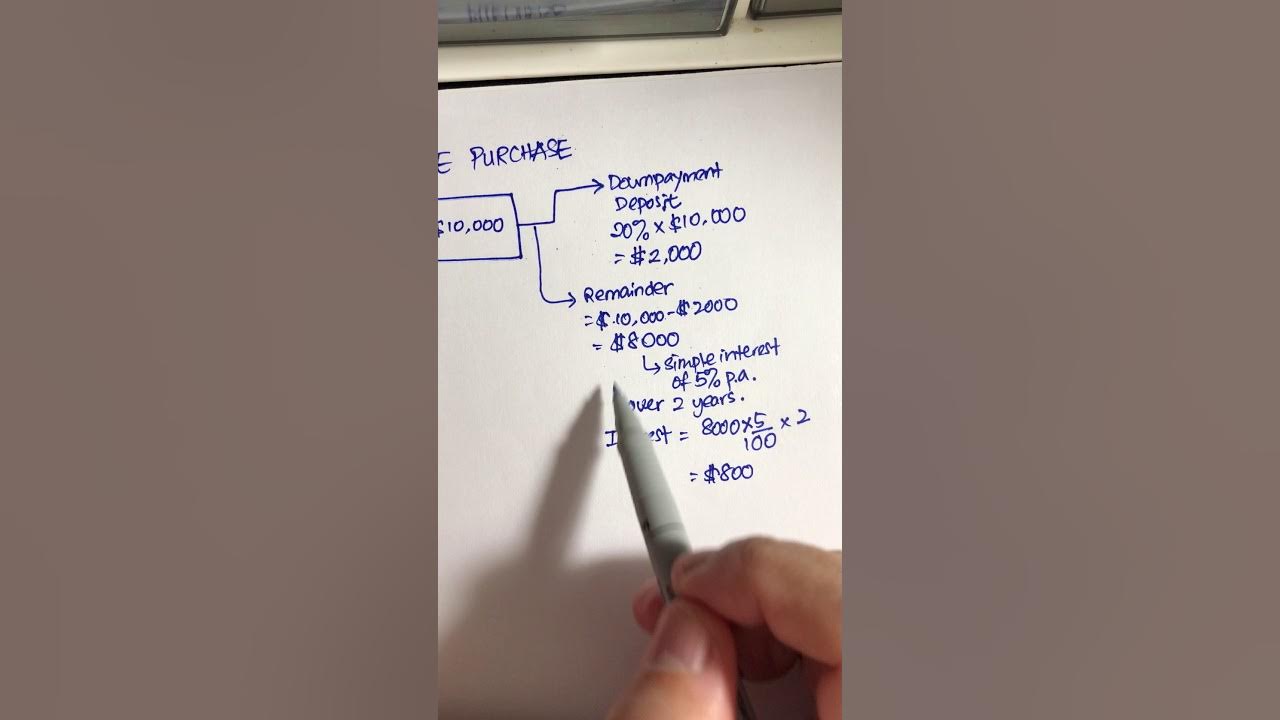 E PURCHASE
$10,000
Downpayment
Deposit
20% × $10,000
= $2,000
Remainder
= $10,000 - $2000
= $8000
↳ simple interest
of 5% p.a.
over 2 years.
= 8000 × 5/100 × 2
= $800